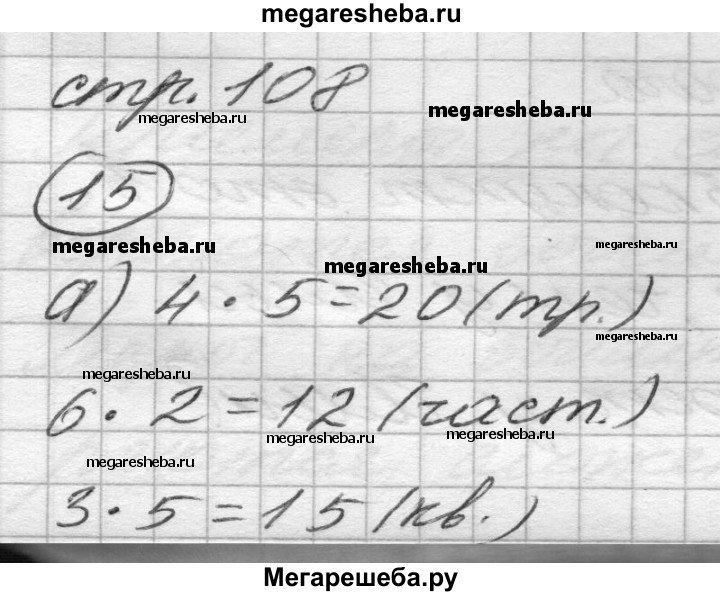 megaresheba.ru
стр. 108
megaresheba.ru
megaresheba.ru
15
megaresheba.ru
megaresheba.ru
megaresheba.ru
а) 4 · 5 = 20 (тр.)
megaresheba.ru
megaresheba.ru
6 · 2 = 12 (част.)
megaresheba.ru
megaresheba.ru
megaresheba.ru
3 · 5 = 15 (кв.)
Мегарешеба.ру